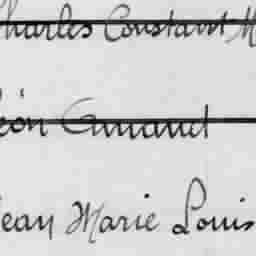 Charles Constant M
Léon Amand
Jean Marie Louis